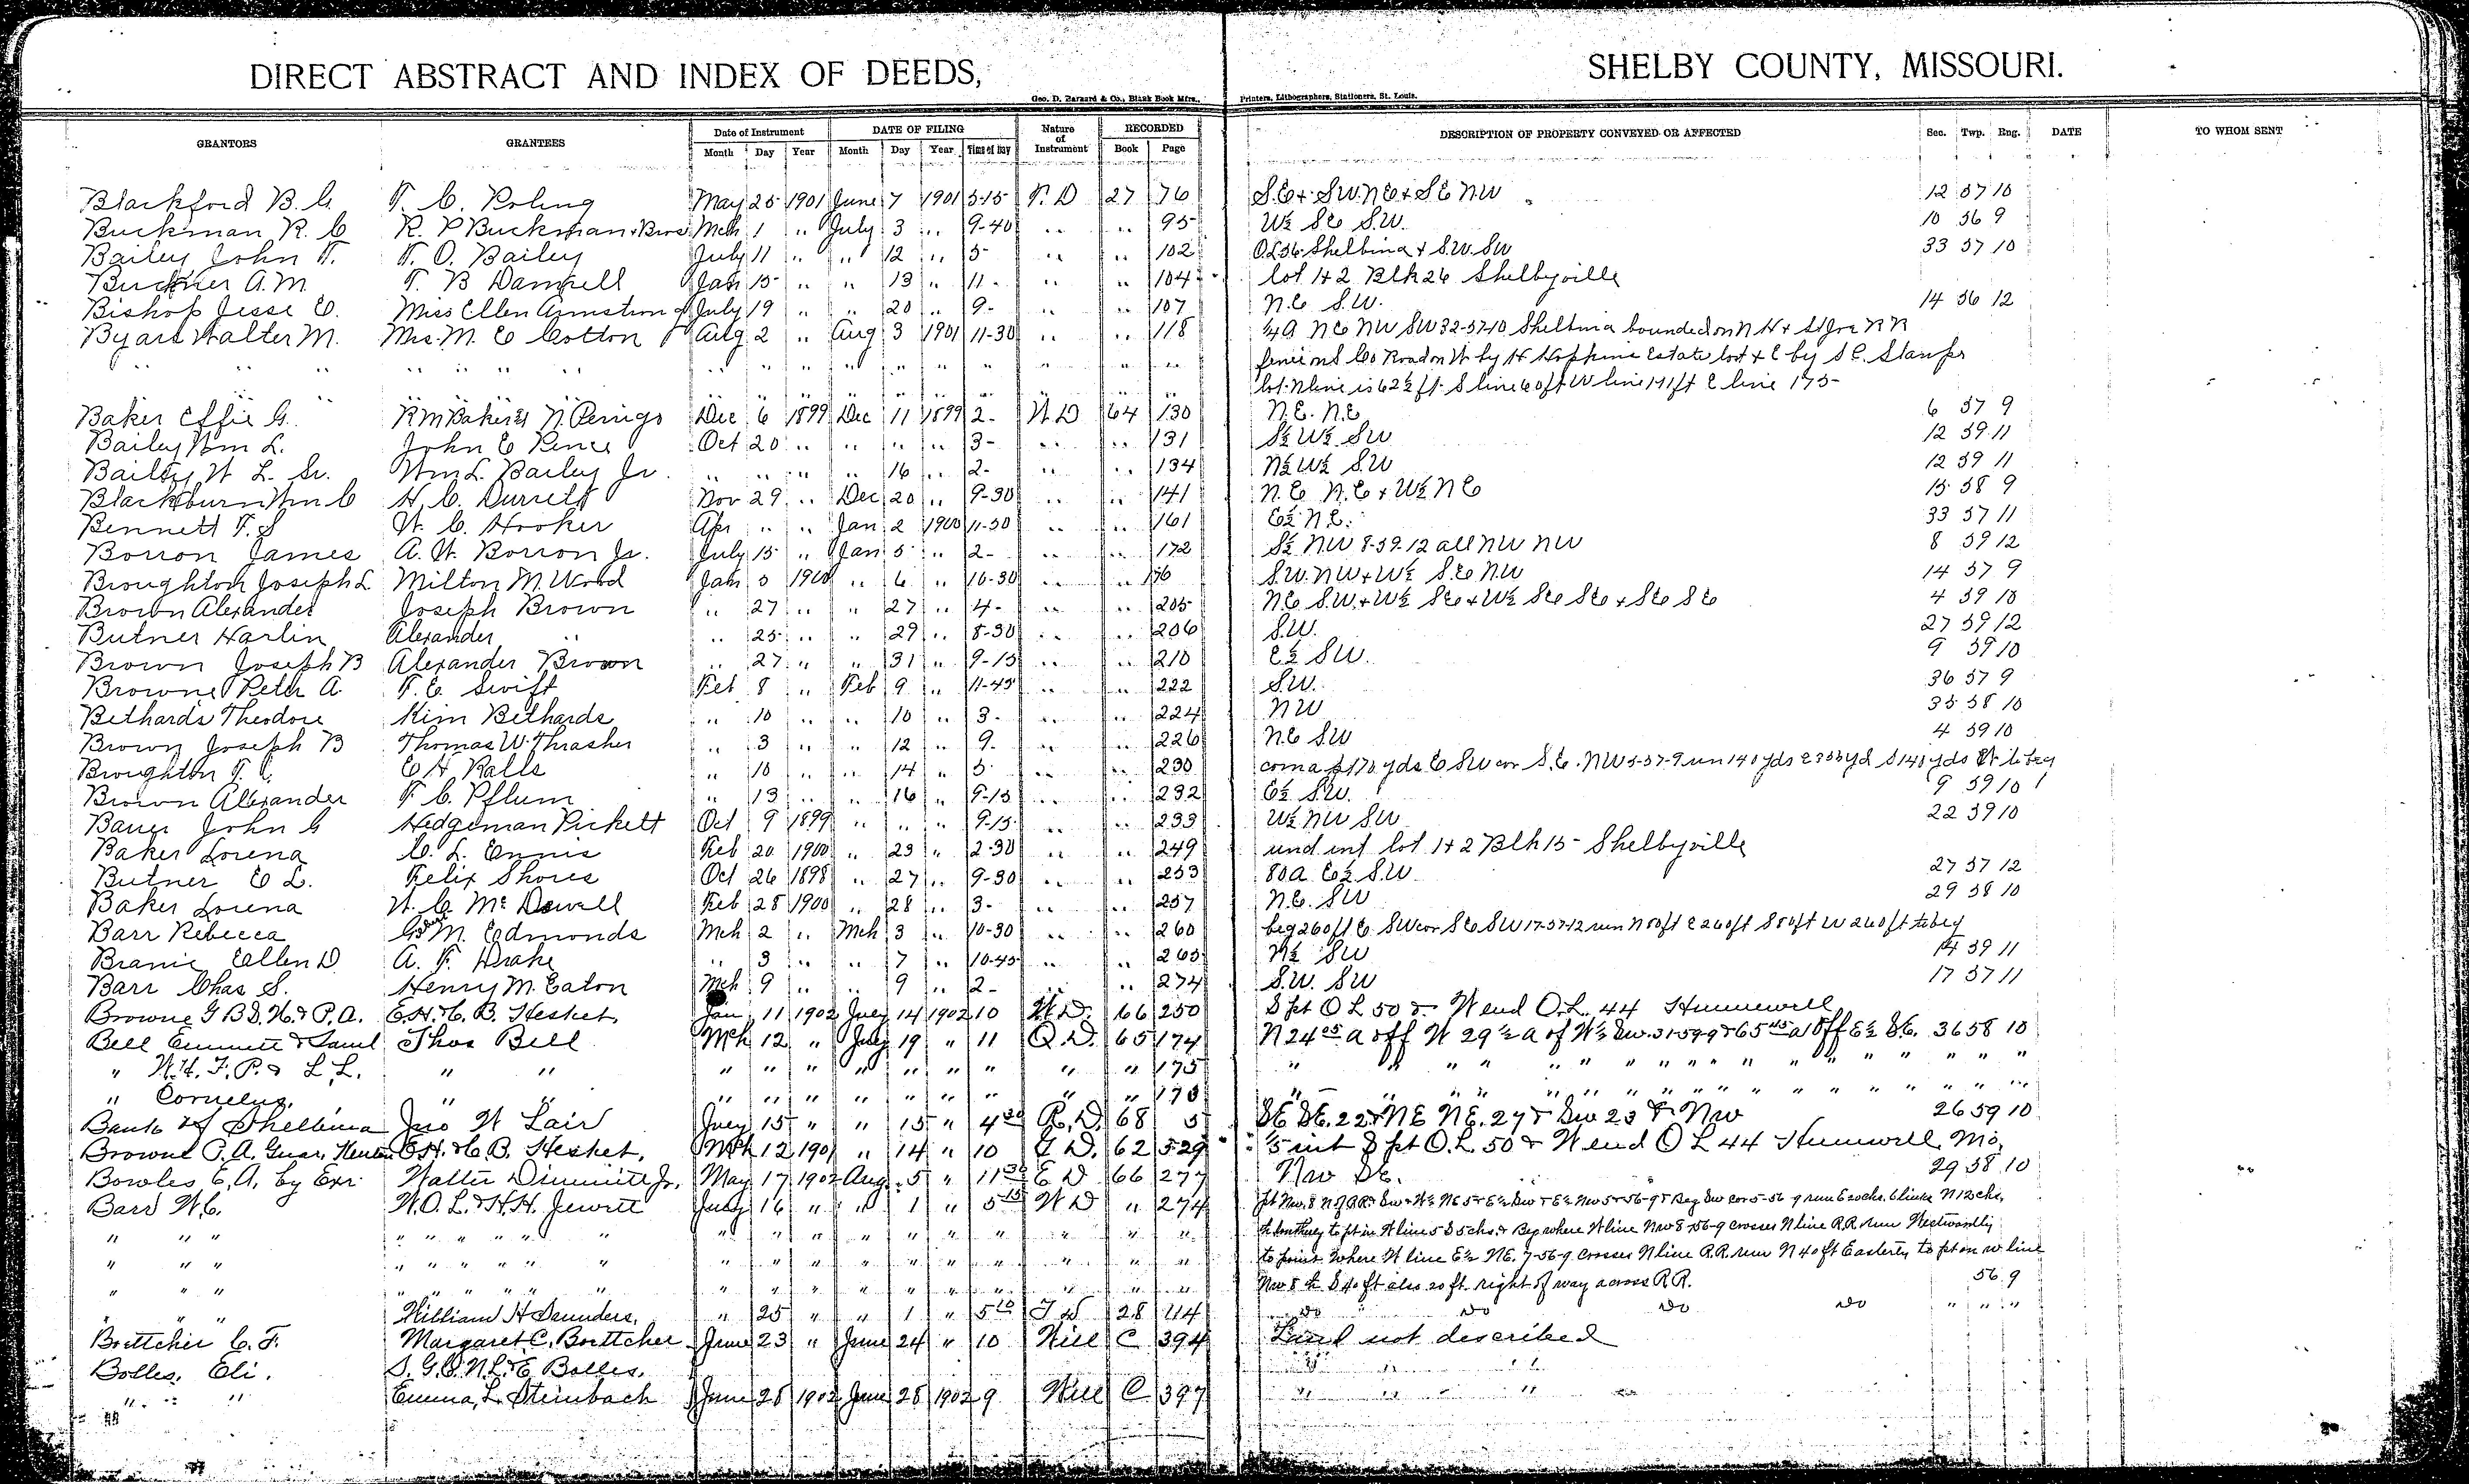 DIRECT ABSTRACT AND INDEX OF DEEDS, SHELBY COUNTY, MISSOURI.
Geo. D. Barnard & Co., Blank Book Mfrs., Printers, Lithographers, Stationers, St. Louis.
GRANTORS GRANTEES Date of Instrument DATE OF FILING Nature of Instrument RECORDED DESCRIPTION OF PROPERTY CONVEYED OR AFFECTED Sec. Twp. Rng. DATE TO WHOM SENT
Month Day Year Month Day Year Time of Day Book Page
Blackford B. G. T. C. Poling May 25 1901 June 7 1901 3-15 T. D 27 76 S.E + S.W. N E + S E N W 12 57 10
Buckman R. C R. P Buckman + Bros Mch 1 " July 3 " 9-40 " " 95 W½ SE S.W. 10 56 9
Bailey John T. T. O. Bailey July 11 " " 12 " 5- " " 102 O.L 36 Shelbina + S.W. SW 33 57 10
Buckner A. M. T. B Damrell Jan 15 " " 13 " 11- " " 104 lot 1+2 Blk 26 Shelbyville
Bishop Jesse E. Miss Ellen Armstrong July 19 " " 20 " 9- " " 107 N.E S.W. 14 56 12
Byars Walter M. Mrs. M. E Cotton Aug 2 " Aug 3 1901 11-30 " " 118 ¼ a NE NW SW 32-57-10 Shelbina bounded on N H + St Joe RR
" " " " " " " " " " " " " " " " fence on S Co Road on W by H Hopkins Estate lot + E by S C. Stamps
" " " " " " " " " " " " " " " " lot. N line is 62½ ft. S line 60 ft W line 171 ft E line 175-
Baker Effie G. R M Baker & N. Perrigo Dec 6 1899 Dec 11 1899 2- W D 64 130 N.E. N.E 6 57 9
Bailey Wm L. John E Pence Oct 20 " " " " 3- " " 131 S½ W½ SW 12 59 11
Bailey W L. Sr. Wm L. Bailey Jr. " " " " 16 " 2- " " 134 N½ W½ S.W 12 59 11
Blackburn Wm C H. C. Durrett Nov 29 " Dec 20 " 9-30 " " 141 N.E N.E + W½ N E 15 58 9
Bennett T. S W. C. Hooker Apr " " Jan 2 1900 11-30 " " 161 E½ N.E. 33 57 11
Borron James A. W. Borron Jr. July 15 " Jan 5 " 2- " " 172 S½ NW 8-59-12 all NW NW 8 59 12
Broughton Joseph L Milton M. Wood Jan 5 1900 " 6 " 10-30 " " 176 S.W. NW + W½ S.E N.W 14 57 9
Brown Alexander Joseph Brown " 27 " " 27 " 4- " " 205 NE S.W. + W½ SE + W½ SE SE + SE SE 4 59 10
Butner Harlin Alexander " " 25 " " 29 " 8-30 " " 206 S.W. 27 59 12
Brown Joseph B Alexander Brown " 27 " " 31 " 9-15 " " 210 E½ SW. 9 59 10
Browne Peter A. T. E. Swift Feb 8 " Feb 9 " 11-45 " " 222 S.W. 36 57 9
Bethards Theodore Kim Bethards " 10 " " 10 " 3- " " 224 NW 35 58 10
Brown Joseph B Thomas W. Thrasher " 3 " " 12 " 9- " " 226 N.E SW 4 59 10
Broughton T. C. E H Ralls " 10 " " 14 " 5- " " 230 com a pt 170 yds E SW cor S.E. NW 5-57-9 run 140 yds E yd S 140 yds W to beg
Brown Alexander T. C. Pflum " 13 " " 16 " 9-15 " " 232 E½ S.W. 9 59 10
Bauer John G Hedgeman Pickett Oct 9 1899 " " " 9-15 " " 233 W½ NW SW 22 59 10
Baker Lorena C. L. Ennis Feb 20 1900 " 23 " 2-30 " " 249 und int lot 1+2 Blk 15- Shelbyville
Butner E L. Felix Shores Oct 26 1898 " 27 " 9-30 " " 253 80 a E½ S.W 27 57 12
Baker Lorena W. C. McDowell Feb 28 1900 " 28 " 3- " " 257 N.E. SW 29 58 10
Barr Rebecca M. Edmonds Mch 2 " Mch 3 " 10-30 " " 260 beg 260 ft E SW cor SE SW 17-57-12 run N 80 ft E 260 ft S 80 ft W 260 ft to beg
Ellen D A. F. Drake " 3 " " 7 " 10-45 " " 265 N½ SW 14 59 11
Barr Chas S. Henry M. Eaton Mch 9 " " 9 " 2- " " 274 S.W. SW 17 57 11
Browne G B S. W. & P. A. E. H. & C. B. Hesket, Jan 11 1902 July 14 1902 10 W. D. 66 250 S pt O L 50 & W end O.L. 44 Hunnewell
Bell Emmett & Saml Thos Bell Mch 12 " July 19 " 11 Q D. 65 174 N 24 05 a off W 29½ a of W½ Sw. 31-59-9 & 65 45 a off E½ S.E. 36 58 10
" W. H. F. P. & L. L. " " " " " " " " " " " 175 " " " " " " " " " " " " " "
" Cornelus, " " " " " " " " " " " 176 " " " " " " " " " " " " " "
Bank of Shelbina Jno W Lair July 15 " " 15 " 4 30 R. D. 68 5 SE SE. 22 & NE NE. 27 & Sw 23 & Nw 26 59 10
Browne P. A. Guar. E. H. & C. B. Hesket, Mch 12 1901 " 14 " 10 G D. 62 529 ⅕ int S pt O. L. 50 & W end O L 44 Hunnewell, Mo,
Bowles E. A. by Exr Walter Dimmitt Jr. May 17 1902 Aug. 5 " 11 30 E D 66 277 Nw SE. 29 58 10
Barr W. C. W. O. L. & H. H. Jewett July 16 " " 1 " 5 15 W D " 274 pt Nw. 8 N of R.R. & Sw & W½ NE 5 & E½ Sw & E½ Nw 5 & 56-9 & Beg Sw cor 5-56-9 run E 20 chs. 6 links N 12 chs.
" " " " " " " " " " " " " " " " " " " th Southerly to pt in W line 5 S 5 chs. & Beg where W line Nw 8-56-9 crosses N line R.R. run Westwardly
" " " " " " " " " " " " " " " " " " " to point where W line E½ NE. 7-56-9 crosses N line R.R. run N 40 ft Easterly to pt on w line
" " " " " " " " " " " " " " " " " " " Nw 8 th S 40 ft also 20 ft. right of way across R R. 56 9
" " " William H Saunders, " 25 " " 1 " 5 10 T D 28 114 Do Do Do Do " " "
Boettcher C. F. Margaret C. Boettcher June 23 " June 24 " 10 Will C 394 Land not described
Bolles, Eli. S. G. O. N. L. & E Bolles, " " "
" " " Emma, L. Steinbach June 28 1902 June 28 1902 9 Will C 397 " " "